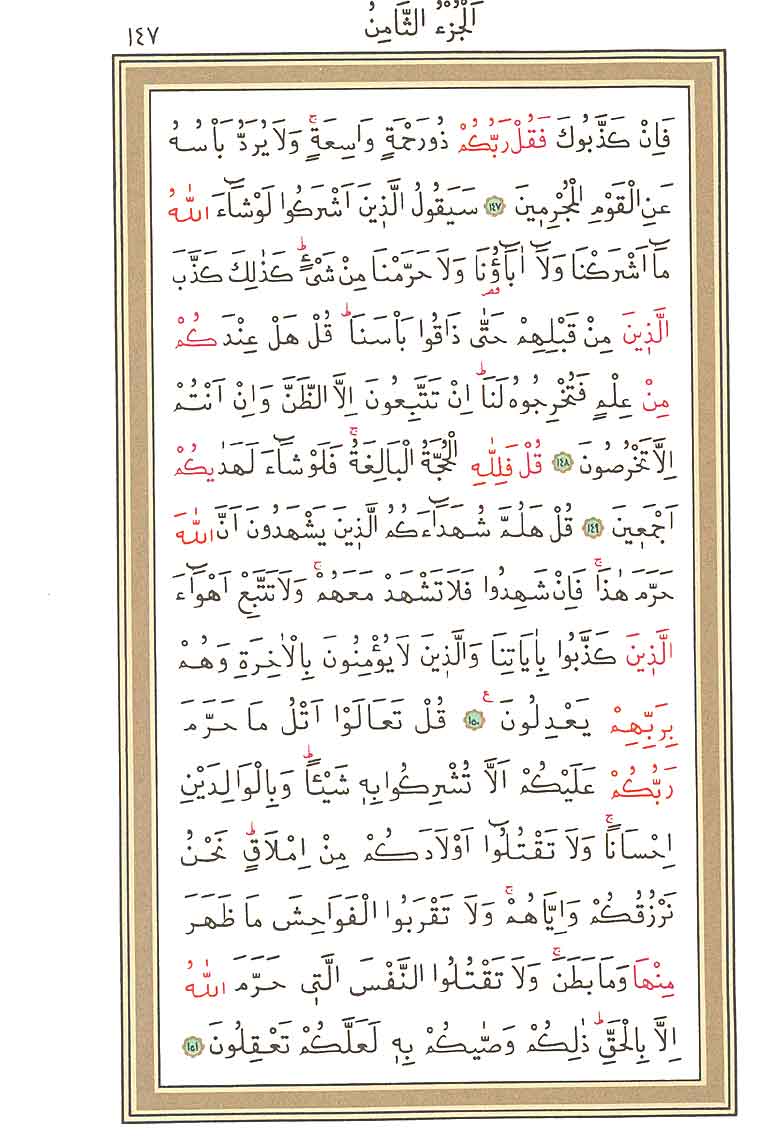 اَلْجُزْءُ الثَّامِنُ
١٤٧
فَاِنْ كَذَّبُوكَ فَقُلْ رَبُّكُمْ ذُو رَحْمَةٍ وَاسِعَةٍۚ وَلَا يُرَدُّ بَأْسُهُ
عَنِ الْقَوْمِ الْمُجْرِمٖينَ ﴿١٤٧﴾ سَيَقُولُ الَّذٖينَ اَشْرَكُوا لَوْ شَٓاءَ اللّٰهُ
مَٓا اَشْرَكْنَا وَلَٓا اٰبَٓاؤُ۬نَا وَلَا حَرَّمْنَا مِنْ شَیْءٍؕ كَذٰلِكَ كَذَّبَ
الَّذٖينَ مِنْ قَبْلِهِمْ حَتّٰى ذَاقُوا بَأْسَنَاؕ قُلْ هَلْ عِنْدَكُمْ
مِنْ عِلْمٍ فَتُخْرِجُوهُ لَنَاؕ اِنْ تَتَّبِعُونَ اِلَّا الظَّنَّ وَاِنْ اَنْتُمْ
اِلَّا تَخْرُصُونَ ﴿١٤٨﴾ قُلْ فَلِلّٰهِ الْحُجَّةُ الْبَالِغَةُۚ فَلَوْ شَٓاءَ لَهَدٰيكُمْ
اَجْمَعٖينَ ﴿١٤٩﴾ قُلْ هَلُمَّ شُهَدَٓاءَكُمُ الَّذٖينَ يَشْهَدُونَ اَنَّ اللّٰهَ
حَرَّمَ هٰذَاۚ فَاِنْ شَهِدُوا فَلَا تَشْهَدْ مَعَهُمْۚ وَلَا تَتَّبِعْ اَهْوَٓاءَ
الَّذٖينَ كَذَّبُوا بِاٰيَاتِنَا وَالَّذٖينَ لَا يُؤْمِنُونَ بِالْاٰخِرَةِ وَهُمْ
بِرَبِّهِمْ يَعْدِلُونَࣖ ﴿١٥٠﴾ قُلْ تَعَالَوْا اَتْلُ مَا حَرَّمَ
رَبُّكُمْ عَلَيْكُمْ اَلَّا تُشْرِكُوا بِهٖ شَيْئًاؕ وَبِالْوَالِدَيْنِ
اِحْسَانًاۚ وَلَا تَقْتُلُٓوا اَوْلَادَكُمْ مِنْ اِمْلَاقٍؕ نَحْنُ
نَرْزُقُكُمْ وَاِيَّاهُمْۚ وَلَا تَقْرَبُوا الْفَوَاحِشَ مَا ظَهَرَ
مِنْهَا وَمَا بَطَنَۚ وَلَا تَقْتُلُوا النَّفْسَ الَّتٖى حَرَّمَ اللّٰهُ
اِلَّا بِالْحَقِّؕ ذٰلِكُمْ وَصّٰيكُمْ بِهٖ لَعَلَّكُمْ تَعْقِلُونَ ﴿١٥١﴾